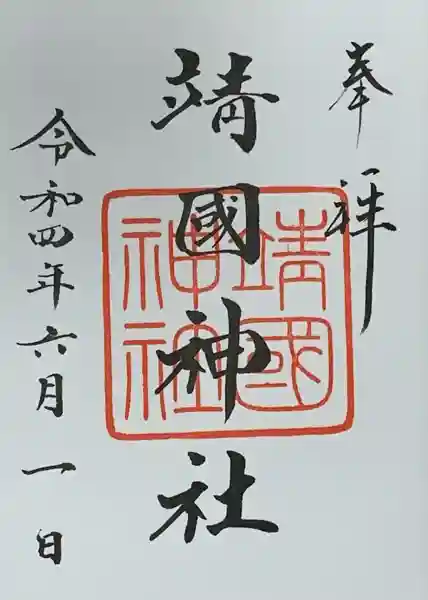 奉拝
靖國神社
靖國
神社
令和四年六月一日